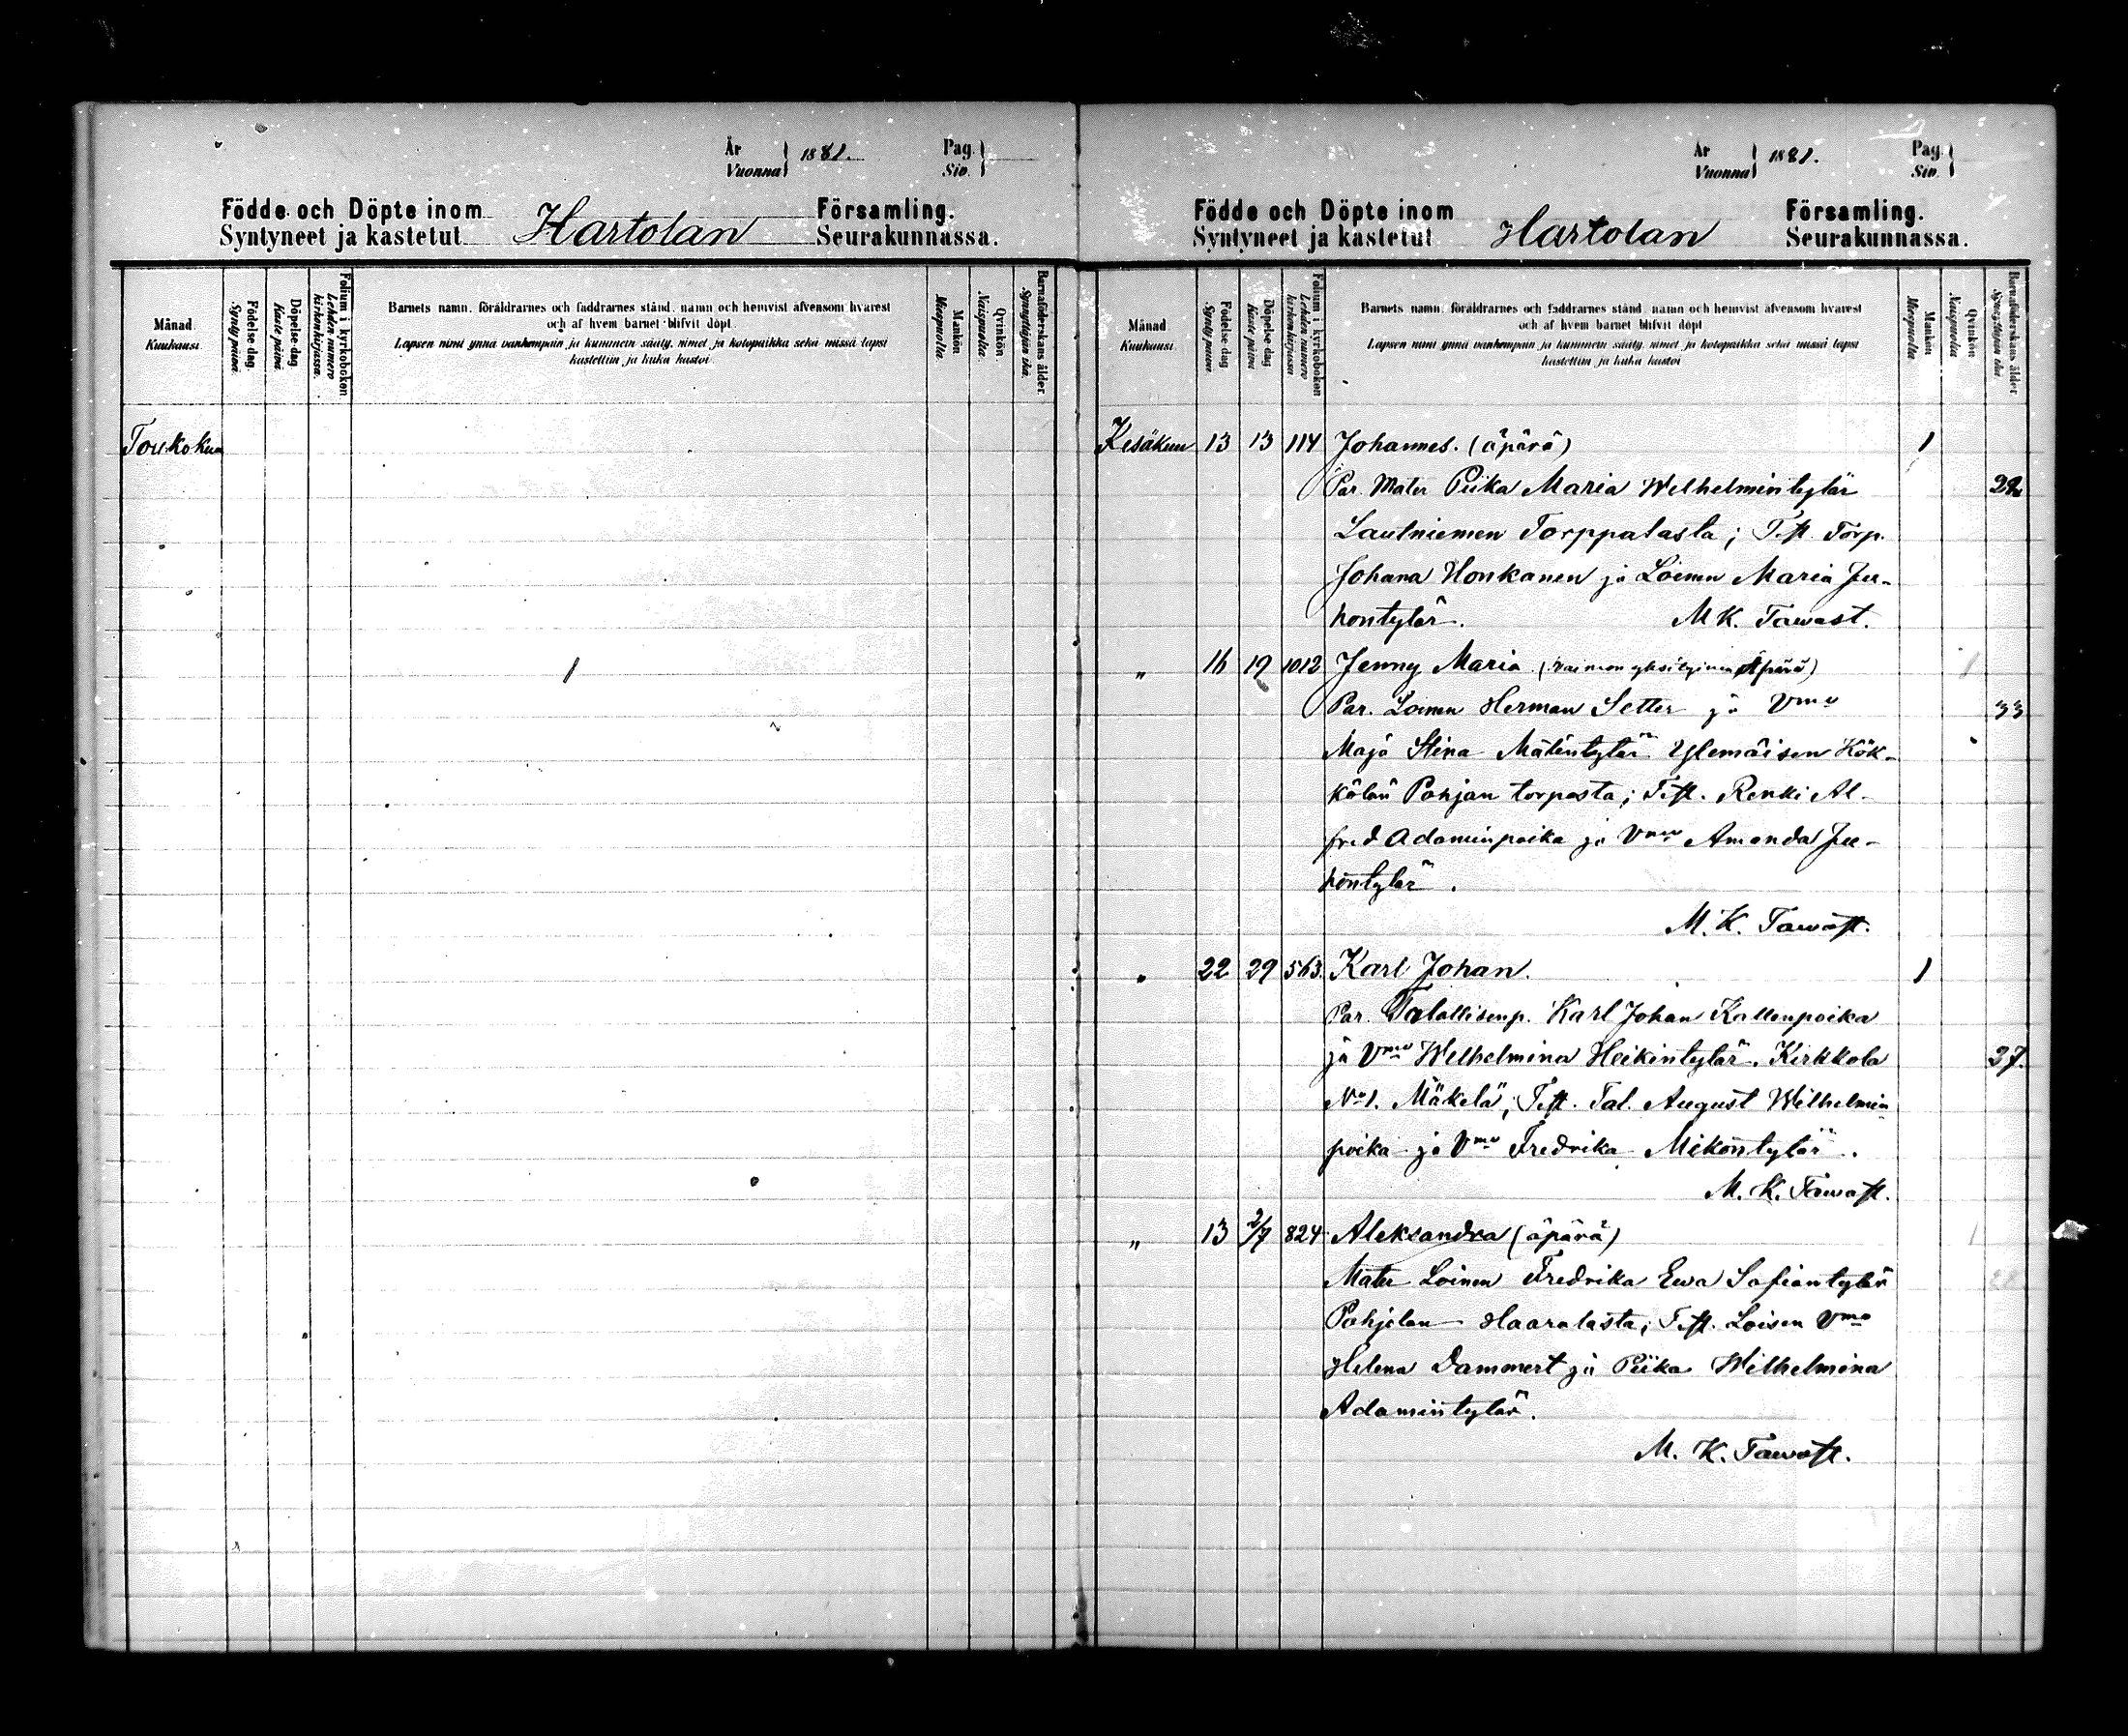 År
Vuonna } 1881.
Pag.
Siv. }
Födde och Döpte inom Hartolan Församling.
Syntyneet ja kastetut Seurakunnassa.
Månad
Kuukausi.
Födelse-dag.
Synty päinä.
Döpelse-dag
Kaste päinä
Folium i kyrkoboken
Lehden numero
kirkonkirjassa.
Barnets namn, föräldrarnes och faddrarnes stånd, namn och hemvist äfvensom hvarest
och af hvem barnet blifvit döpt.
Lapsen nimi ynnä vanhempain ja kummein sääty, nimet ja kotopaikka sekä missä lapsi
kastettiin ja kuka kastoi
Mankön
Miespuolia
Qvinkön
Naispuolia.
Barnaföderskans ålder.
Synnyttäjän ikä.
Toukokuu
År
Vuonna } 1881.
Pag.
Siv. }
Födde och Döpte inom Hartolan Församling.
Syntyneet ja kastetut Seurakunnassa.
Månad
Kuukausi
Födelse dag
Synty päinä
Döpelse dag
Kaste päinä
Folium i kyrkoboken
Lehden numero
kirkonkirjassa
Barnets namn, föräldrarnes och faddrarnes stånd, namn och hemvist äfvensom hvarest
och af hvem barnet blifvit döpt
Lapsen nimi ynnä vanhempain ja kummein sääty, nimet ja kotopaikka sekä missä lapsi
kastettiin ja kuka kastoi
Mankön
Miespuolia
Qvinkön
Naispuolia
Barnaföderskans ålder
Synnyttäjän ikä
Kesäkuu 13 13 114 Johannes. (äpärä) 1
Par. Mater Piika Maria Welhelmintytär
Lautniemen Torppalasta; Test. Torp.
Johana Honkanen ja Loinen Maria Ju-
hontytär. M K. Tawast.
" 16 19 1012 Jenny Maria (vaimon yksityinen Äpärä) 1
Par. Loinen Herman Setter ja Vmo 33
Maja Stina Matintytär Ylemäisen Kök-
kölän Pohjan torpasta; Test. Renki Al-
fred Adaminpoika ja Vmo Amanda Ju-
hontytär.
M. K. Tawast.
" 22 29 563. Karl Johan. 1
Par. Talollisenp. Karl Johan Kallenpoika
ja Vmo Welhelmina Heikintytär. Kirkkola 27.
No 1. Mäkelä; Test. Tal. August Wilhelmin
poika ja Vmo Fredrika Mikontytär.
M. K. Tawast.
" 13 2/7 824 Aleksandra (äpärä) 1
Mater Loinen Fredrika Ewa Sofiantytär
Pohjolan Haaralasta; Test. Loisen Vmo
Helena Dammert ja Piika Wilhelmina
Adamintytär.
M. K. Tawast.